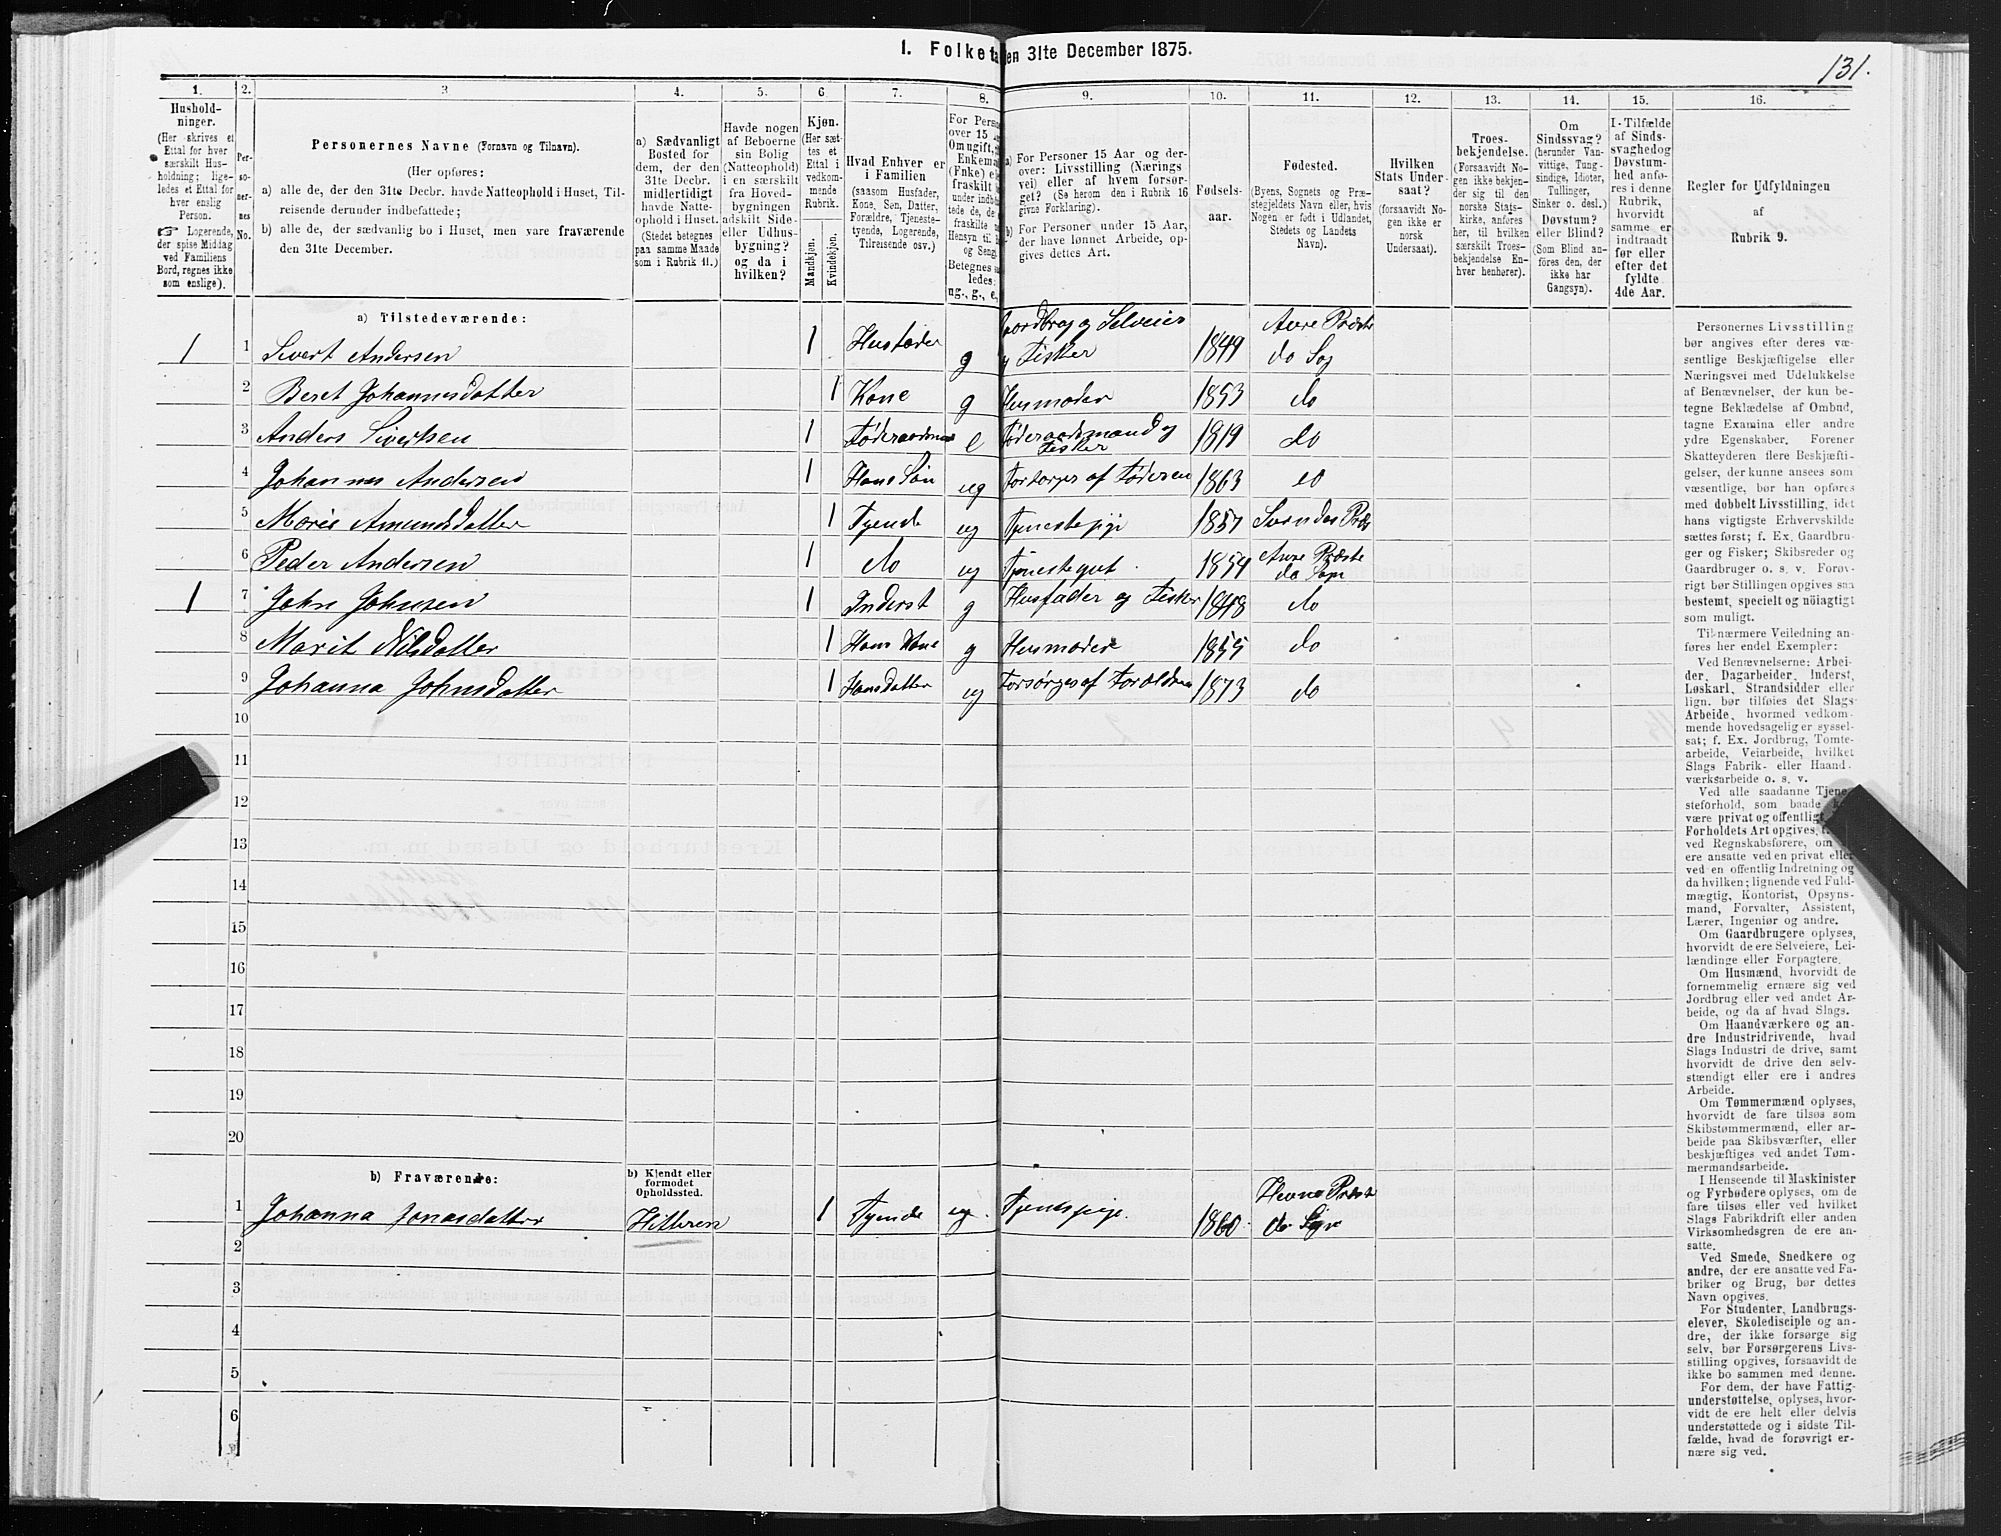 1. Folketa
en 31te December 1875.
131.
1.
2.
3.
4.
5.
6.
7.
8.
9.
10.
11.
12.
13.
14.
15.
16.
Hushold-
ninger.
(Her skrives et
Ettal for hver
særskilt Hus-
holdning; lige-
ledes et Ettal for
hver enslig
Person.
☞ Logerende,
der spise Middag
ved Familiens
Bord, regnes ikke
som enslige).
Per-
so-
ner-
nes
No.
Personernes Navne (Fornavn og Tilnavn).
(Her opføres:
a) alle de, der den 31te Decbr. havde Natteophold i Huset, Til-
reisende derunder indbefattede;
b) alle de, der sædvanlig bo i Huset, men vare fraværende
den 31te December.
a) Sædvanligt
Bosted for
dem, der den
31te Decbr.
midlertidigt
havde Natte-
ophold i Huset.
(Stedet betegnes
paa samme Maade
som i Rubrik 11.)
Havde nogen
af Beboerne
sin Bolig
(Natteophold)
i en særskilt
fra Hoved-
bygningen
adskilt Side-
eller Udhus-
bygning?
og da i
hvilken?
Kjøn.
(Her sæt-
tes et
Ettal i
vedkom-
mende
Rubrik.
Mandkjøn.
Kvindekjøn.
Hvad Enhver er
i Familien
(saasom Husfader,
Kone, Søn, Datter,
Forældre, Tjeneste-
tyende, Logerende,
Tilreisende osv.)
For Perso
over 15
Om ugift,
Enkem
(Fnke) e
fraskilt
under indb
tede de, d
fraskilte
Hensyn til
og Seng.
Betegnes s
ledes:
ug., g., e.
a) For Personer 15 Aar og der-
over: Livsstilling (Nærings
vei) eller af hvem forsør-
get? (Se herom den i Rubrik 16
givne Forklaring).
b) For Personer under 15 Aar,
der have lønnet Arbeide, op-
gives dettes Art.
Fødsels-
aar.
Fødested.
(Byens, Sognets og Præ-
stegjeldets Navn eller, hvis
Nogen er født i Udlandet,
Stedets og Landets
Navn).
Hvilken
Stats Under-
saat?
(forsaavidt No-
gen ikke er
norsk
Undersaat).
Troes-
bekjendelse.
(Forsaavidt No-
gen ikke bekjen-
der sig til den
norske Stats-
kirke, anføres
her, til hvilken
særskilt Troes-
bekjendelse En-
hver henhører).
Om
Sindssvag?
(herunder Van-
vittige, Tung-
sindige, Idioter,
Tullinger,
Sinker o. desl.)
Døvstum?
eller Blind?
(Som Blind an-
føres den, der
ikke har
Gangsyn).
I Tilfælde
af Sinds-
svaghed og
Døvstum-
hed anfø-
res i denne
Rubrik,
hvorvidt
samme er
indtraadt
før eller
efter det
fyldte
4de Aar.
Regler for Udfyldningen
af
Rubrik 9.
a) Tilstedeværende:
1 1 Sivert Andersen 1 Husfader g Gaardbrug og Selveier og Fisker 1849 Aure Præste do Sog
2 Beret Johannesdatter 1 Kone g Husmoder 1853 do
3 Anders Sivertsen 1 Føderaadsman e Føderaadsmand og Fisker 1819 do
4 Johannes Andersen 1 Hans Søn ug Forsørges af Føderen 1863 do
5 Marie Amundsdatter 1 Tyende ug Tjenestepige 1857 Surndas Præs
6 Peder Andersen 1 do ug Tjenestegut 1854 Aure Præste do Sogn
1 7 John Johnsen 1 Inderst g Husfader og Fisker 1848 do
8 Marit Nilsdatter 1 Hans Kone g Husmoder 1855 do
9 Johanna Johnsdatter 1 Hansdatter ug Forsørges af Foraldrene 1873 do
10
11
12
13
14
15
16
17
18
19
20
b) Fraværende:
b) Kjendt eller
formodet
Opholdssted.
1 Johanna Jonasdatter Hitteren 1 Tyende ug. Tjenespige. 1860 Hevne Præst do Sogn
2
3
4
5
6
Personernes Livsstilling
bør angives efter deres væ-
sentlige Beskjæftigelse eller
Næringsvei med Udelukkelse
af Benævnelser, der kun be-
tegne Beklædelse af Ombud,
tagne Examina eller andre
ydre Egenskaber. Forener
Skatteyderen flere Beskjæfti-
gelser, der kunne ansees som
væsentlige, bør han opføres
med dobbelt Livsstilling, idet
hans vigtigste Erhvervskilde
sættes først; f. Ex. Gaardbru-
ger og Fisker; Skibsreder og
Gaardbruger o. s. v. Forøv-
rigt bør Stillingen opgives saa
bestemt, specielt og nöiagtigt
som muligt.
Til nærmere Veiledning an-
føres her endel Exempler:
Ved Benævnelserne: Arbei-
der, Dagarbeider, Inderst,
Løskarl, Strandsidder eller
lign. bør tilføies det Slags
Arbeide, hvormed vedkom-
mende hovedsagelig er syssel-
sat; f. Ex. Jordbrug, Tomte-
arbeide, Veiarbeide, hvilket
Slags Fabrik- eller Haand-
værksarbeide o. s. v.
Ved alle saadanne Tjene-
steforhold, som baade k
være privat og offentligt,
Forholdets Art opgives,
ved Regnskabsførere, om
ere ansatte ved en privat eller
ved en offentlig Indretning og
da hvilken; lignende ved Fuld-
mægtig, Kontorist, Opsyns-
mand, Forvalter, Assistent,
Lærer, Ingeniør og andre.
Om Gaardbrugere oplyses,
hvorvidt de ere Selveiere, Lei-
lændinge eller Forpagtere.
Om Husmænd, hvorvidt de
fornemmelig ernære sig ved
Jordbrug eller ved andet Ar-
beide, og da af hvad Slags.
Om Haandværkere og an-
dre Industridrivende, hvad
Slags Industri de drive, samt
hvorvidt de drive den selv-
stændigt eller ere i andres
Arbeide.
Om Tømmermænd oplyses,
hvorvidt de fare tilsøs som
Skibstømmermænd, eller ar-
beide paa Skibsværfter, eller
beskjæftiges ved andet Tøm-
mermandsarbeide.
I Henseende til Maskinister
og Fyrbødere oplyses, om de
fare tilsøs eller ved hvilket
Slags Fabrikdrift eller anden
Virksomhedsgren de ere an-
satte.
Ved Smede, Snedkere og
andre, der ere ansatte ved Fa-
briker og Brug, bør dettes
Navn opgives.
For Studenter, Landbrugs-
elever, Skoledisciple og an-
dre, der ikke forsørge sig
selv, bør Forsørgerens Livs-
stilling opgives, forsaavidt de
ikke bo sammen med denne.
For dem, der have Fattig-
understøttelse, oplyses, hvor-
vidt de ere helt eller delvis
understøttede og i sidste Til-
fælde, hvad de forøvrigt er-
nære sig ved.